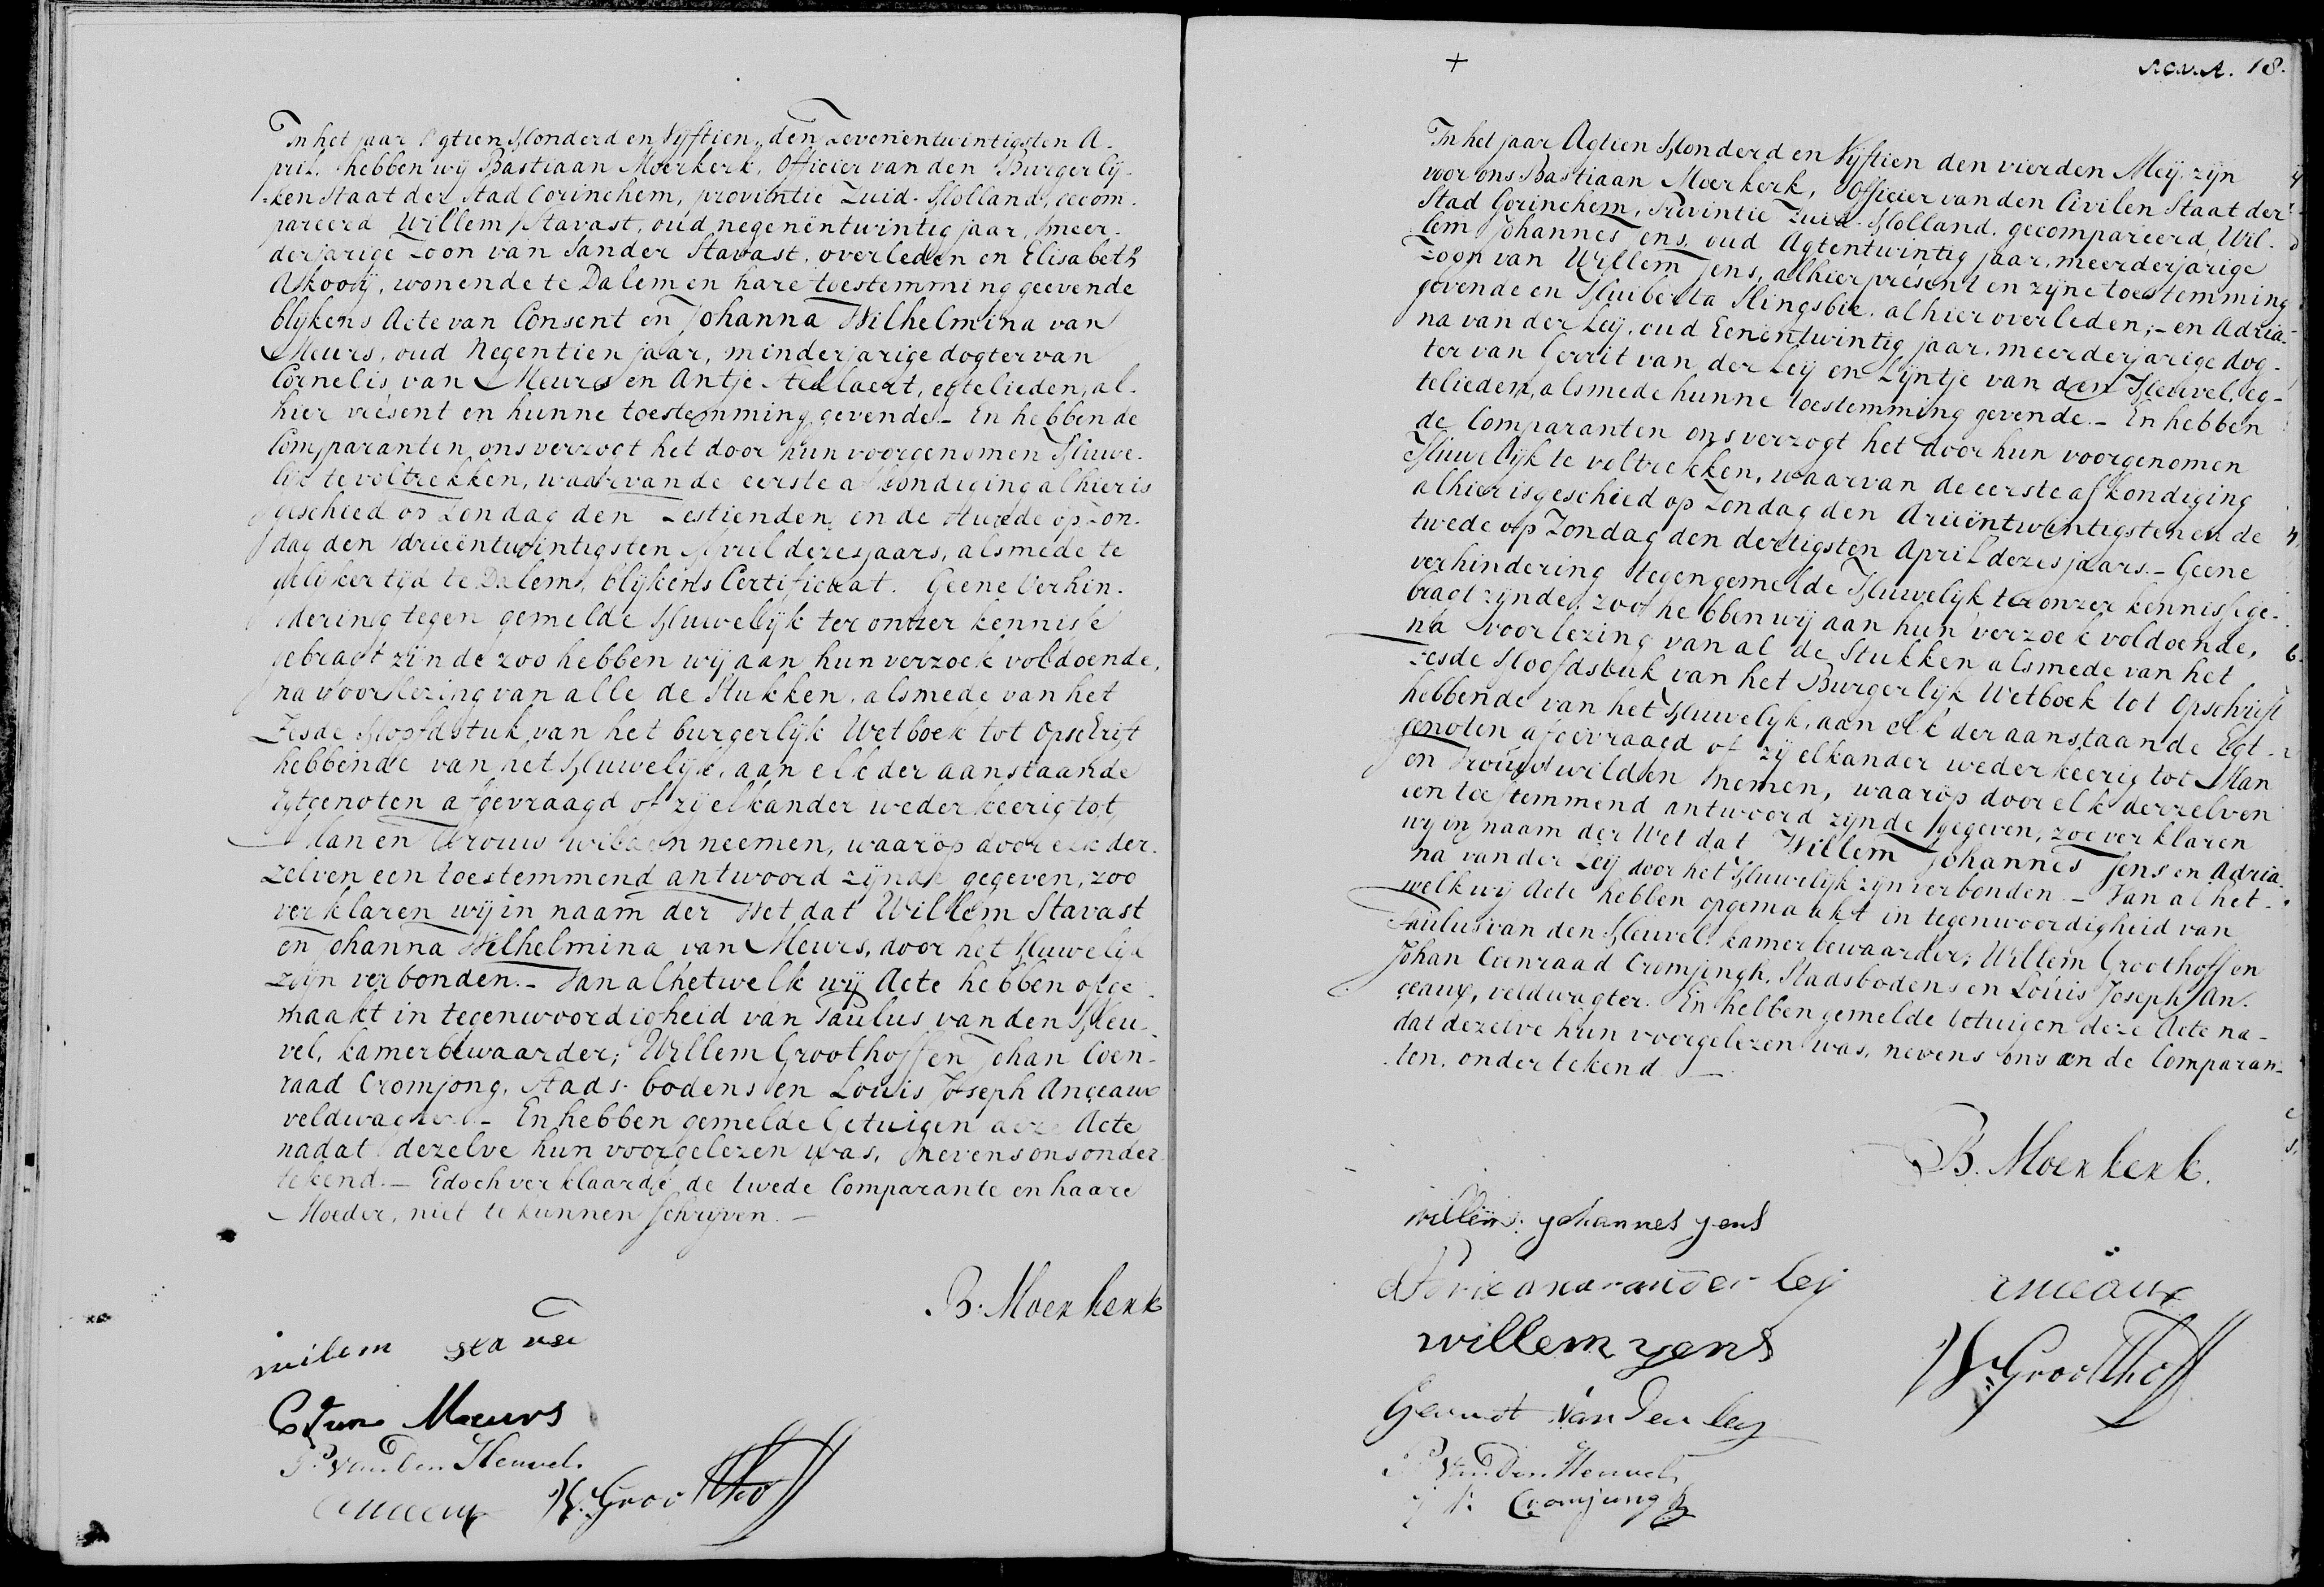 In het jaar Agtien Honderd en Vijftien, den Zevenentwintigsten A-
pril. hebben wij Bastiaan Moerkerk, Officier van den Burgerlij-
ken Staat der Stad Gorinchem, provintie Zuid-Holland, gecom-
pareerd Willem Stavast, oud negenëntwintig jaar, meer-
derjarige Zoon van Sander Stavast, overleden en Elisabeth
Askooij, wonende te Dalem en hare toestemming geevende
blijkens Acte van Consent en Johanna Wilhelmina van
Meurs, oud Negentien jaar, minderjarige dogter van
Cornelis van Meurs en Antje Stellaert, egtelieden, al-
hier présent en hunne toestemming gevende.- En hebben de
Comparanten ons verzogt het door hun voorgenomen Huwe-
lijk te voltrekken, waarvan de eerste afkondiging alhier is
geschied op Zondag den Zestienden en de twede op Zon-
dag den drieëntwintigsten April dezes jaars, alsmede te
gelijker tijd te Dalem, blijkens Certificaat. Geene Verhin-
dering tegen gemelde Huwelijk ter onzer kennisse
gebragt zijnde zoo hebben wij aan hun verzoek voldoende,
na voorlezing van alle de Stukken, alsmede van het
Zesde Hoofdstuk van het burgerlijk Wetboek tot Opschrift
hebbende van het Huwelijk, aan elk der aanstaande
Egtgenoten afgevraagd of zij elkander wederkeerig tot
Man en Vrouw wilden neemen, waaröp door elk der-
zelven een toestemmend antwoord zijnde gegeven, zoo
verklaren wij in naam der Wet dat Willem Stavast
en Johanna Wilhelmina van Meurs, door het Huwelijk
zijn verbonden.- Van al hetwelk wij Acte hebben opge-
maakt in tegenwoordigheid van Paulus van den Heu-
vel, kamerbewaarder; Willem Groothoff en Johan Coen-
raad Cromjong, Stads-bodens en Louis Joseph Anceaux
veldwagter.- En hebben gemelde Getuigen deze Acte
nadat dezelve hun voorgelezen was, nevens ons onder-
tekend.- Edoch verklaarde de twede Comparante en haare
Moeder, niet te kunnen schrijven.-
B. Moerkerk
wilem stavse
C van Meurs
P. van den Heuvel.
Anceaux W. Groothoff
+
18.
In het jaar Agtien Honderd en Vijftien den vierden Meij, zijn
voor ons Bastiaan Moerkerk, Officier van den Civilen Staat der
Stad Gorinchem, Provintie Zuid-Holland, gecompareerd, Wil-
lem Johannes Jens, oud Agtentwintig jaar, meerderjarige
zoon van Willem Jens, alhier présent en zijne toestemming
gevende en Huiberta Slingsbie, alhier overleden;- en Adria-
na van der Leij, oud Eenentwintig jaar, meerderjarige dog-
ter van Gerrit van der Leij en Lijntje van den Heuvel, eg-
telieden, alsmede hunne toestemming gevende.- En hebben
de Comparanten ons verzogt het door hun voorgenomen
Huwelijk te voltrekken, waarvan de eerste afkondiging
alhier is geschied op Zondag den drieëntwintigsten en de
twede op Zondag den dertigsten April dezes jaars.- Geene
verhindering tegen gemelde Huwelijk ter onzer kennisse ge-
bragt zijnde, zoo hebben wij aan hun verzoek voldoende,
na voorlezing van al de Stukken alsmede van het
zesde Hoofdstuk van het Burgerlijk Wetboek tot Opschrift
hebbende van het Huwelijk, aan elk der aanstaande Egt-
genoten afgevraagd of zij elkander wederkeerig tot Man
en Vrouw wilden nemen, waaröp door elk derzelven
een toestemmend antwoord zijnde gegeven, zoo verklaren
wij in naam der Wet dat Willem Johannes Jens en Adria-
na van der Leij door het Huwelijk zijn verbonden.- Van al het-
welk wij Acte hebben opgemaakt in tegenwoordigheid van
Paulus van den Heuvel, kamerbewaarder; Willem Groothoff en
Johan Coenraad Cromjongh, Stadsbodens en Louis Joseph An-
ceaux, veldwagter. En hebben gemelde Getuigen deze Acte na-
dat dezelve hun voorgelezen was, nevens ons en de Comparan-
ten, ondertekend.-
B. Moerkerk.
willem johannes jens
Adriana van der Leij
Anceaux
willem jens
W. Groothoff
Gerrit van der Leij
P. van den Heuvel
Cromjong